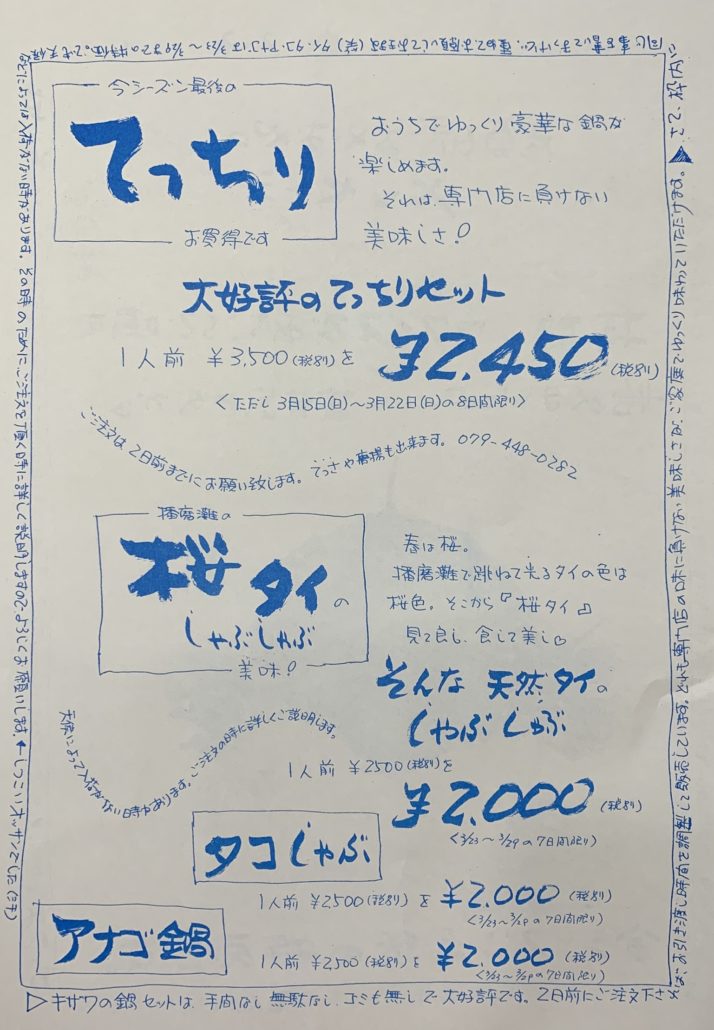 今シーズン最後の
てっちり
お買得です
おうちでゆっくり豪華な鍋を
楽しめます。
それは、専門店に負けない
美味しさ!
大好評のてっちりセット
1人前 ¥3,500(税別)を
¥2,450(税別)
<ただし 3月15日(日)〜3月22日(日)の8日間限り>
ご注文は、2日前までにお願い致します。てっさや唐揚も出来ます。079-448-0282
播磨灘の
桜タイの
しゃぶしゃぶ
美味!
春は桜。
播磨灘で跳ねて光るタイの色は
桜色。そこから『桜タイ』
見て良し、食して美し♡
そんな天然タイの
しゃぶしゃぶ
天候によって入荷がない時があります。ご注文の時に詳しくご説明します。
1人前 ¥2500(税別)を
¥2,000(税別)
<3/23〜3/29の7日間限り>
タコしゃぶ
1人前 ¥2500(税別)を ¥2,000(税別)
<3/23〜3/29の7日間限り>
アナゴ鍋
1人前 ¥2,500(税別)を ¥2,000(税別)
<3/23〜3/29の7日間限り>
▷キザワの鍋セットは、手間なし、無駄なし、ゴミも無しで大好評です。2日前にご注文下さ
れば、お引き渡し時間で調整して販売しています。どれも専門店の味に負けない美味しさが、ご家庭でゆっくり味わっていただけます。▶さて、枠内に
同じ事を書いて
重ねてお願いしておきます(笑)タイ、タコ、アナゴは3/23〜3/29までの特価。でも天候
などによっては入荷がない時があります。その時のためにご注文を頂く時に詳しく説明しますので、よろしくお願いします。←しつこいオッサンでした(汗)